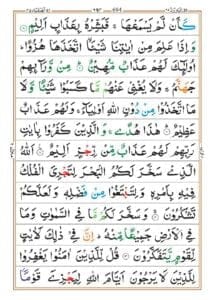 كَاَنْ لَّمْ يَسْمَعْهَا ۚ فَبَشِّرْهُ بِعَذَابٍ اَلِيْمٍ
وَ اِذَا عَلِمَ مِنْ اٰيٰتِنَا شَيْـًٔا اتَّخَذَهَا هُزُوًا ؕ
اُولٰٓئِكَ لَهُمْ عَذَابٌ مُّهِيْنٌ مِنْ وَّرَآئِهِمْ
جَهَنَّمُ ۚ وَلَا يُغْنِيْ عَنْهُمْ مَّا كَسَبُوْا شَيْـًٔا وَّلَا
مَا اتَّخَذُوْا مِنْ دُوْنِ اللّٰهِ اَوْلِيَآءَ ۚ وَلَهُمْ عَذَابٌ
عَظِيْمٌ هٰذَا هُدًى ۚ وَالَّذِيْنَ كَفَرُوْا بِاٰيٰتِ
رَبِّهِمْ لَهُمْ عَذَابٌ مِّنْ رِّجْزٍ اَلِيْمٌ اَللّٰهُ
الَّذِيْ سَخَّرَ لَكُمُ الْبَحْرَ لِتَجْرِيَ الْفُلْكُ
فِيْهِ بِاَمْرِهٖ وَلِتَبْتَغُوْا مِنْ فَضْلِهٖ وَلَعَلَّكُمْ
تَشْكُرُوْنَ وَسَخَّرَ لَكُمْ مَّا فِي السَّمٰوٰتِ وَمَا
فِي الْاَرْضِ جَمِيْعًا مِّنْهُ ؕ اِنَّ فِيْ ذٰلِكَ لَاٰيٰتٍ
لِّقَوْمٍ يَّتَفَكَّرُوْنَ قُلْ لِّلَّذِيْنَ اٰمَنُوْا يَغْفِرُوْا
لِلَّذِيْنَ لَا يَرْجُوْنَ اَيَّامَ اللّٰهِ لِيَجْزِيَ قَوْمًا